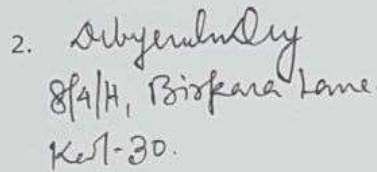 2. Dibyendu Dey
8/4/H, Birpara Lane
Kol-30.